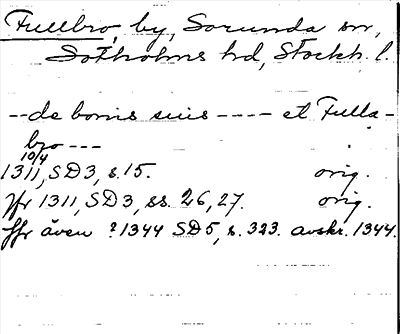 Fullbro, by, Sorunda sn,
Sotholms hd, Stockh. l.
-- de bonis suis ---- et Fulla-
bro ---
10/4
1311, SD3, s. 15. orig.
Jfr 1311, SD3, ss. 26, 27. orig.
Jfr även ? 1344 SD5, s. 323. avskr. 1344.